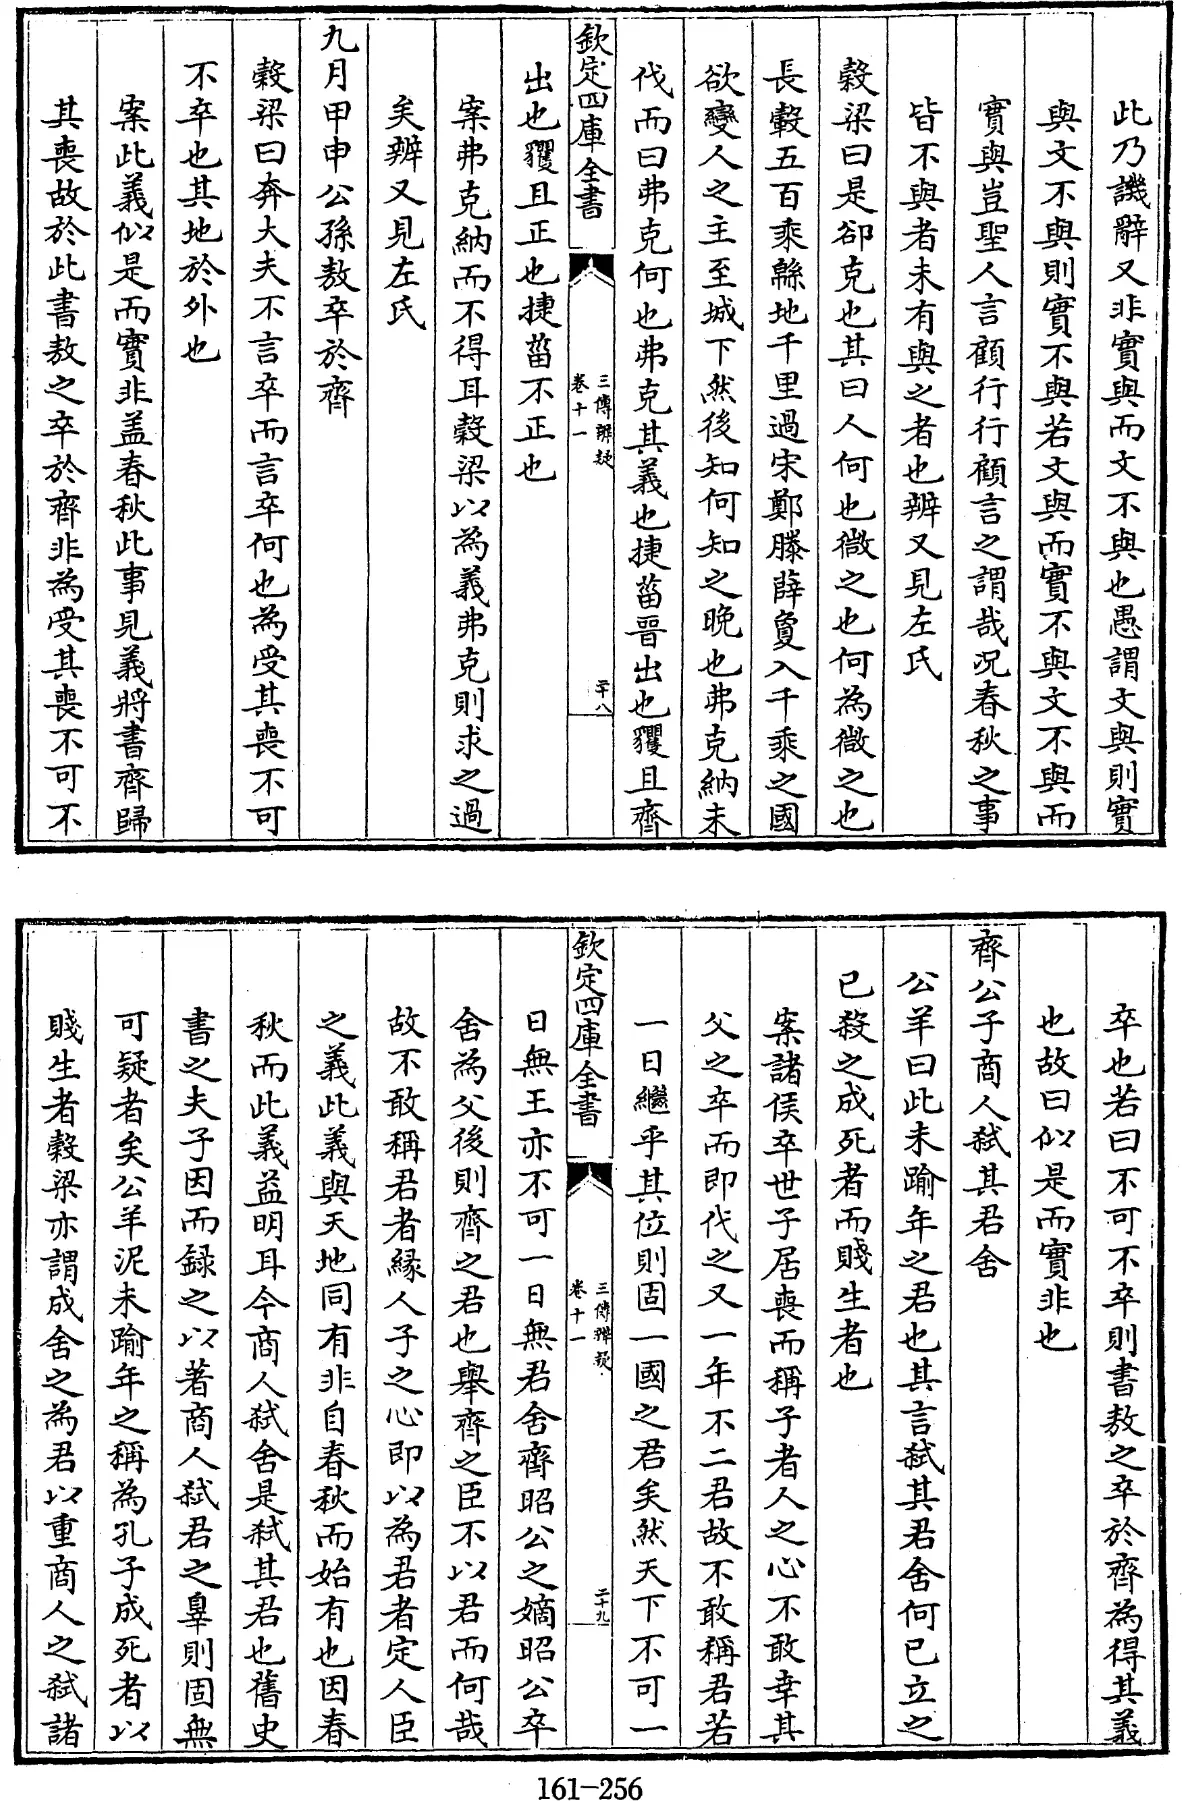 此乃譏辭又非實與而文不與也愚謂文與則實
與文不與則實不與若文與而實不與文不與而
實與豈聖人言顧行行顧言之謂哉況春秋之事
皆不與者未有與之者也辨又見左氏
穀梁曰是郤克也其曰人何也微之也何為微之也
長轂五百乘緜地千里過宋鄭滕薛敻入千乘之國
欲變人之主至城下然後知何知之晚也弗克納未
伐而曰弗克何也弗克其義也捷菑晉出也貜且齊
欽定四庫全書
三傳辨疑
卷十一
二十八
出也貜且正也捷菑不正也
案弗克納而不得耳穀梁以為義弗克則求之過
矣辨又見左氏
九月甲申公孫敖卒於齊
穀梁曰奔大夫不言卒而言卒何也為受其喪不可
不卒也其地於外也
案此義似是而實非盖春秋此事見義將書齊歸
其喪故於此書敖之卒於齊非為受其喪不可不
卒也若曰不可不卒則書敖之卒於齊為得其義
也故曰似是而實非也
齊公子商人弒其君舍
公羊曰此未踰年之君也其言弒其君舍何已立之
已殺之成死者而賤生者也
案諸侯卒世子居喪而稱子者人之心不敢幸其
父之卒而即代之又一年不二君故不敢稱君若
一日繼乎其位則固一國之君矣然天下不可一
欽定四庫全書
三傳辨疑
卷十一
二十九
日無王亦不可一日無君舍齊昭公之嫡昭公卒
舍為父後則齊之君也舉齊之臣不以君而何哉
故不敢稱君者緣人子之心即以為君者定人臣
之義此義與天地同有非自春秋而始有也因春
秋而此義益明耳今商人弒舍是弒其君也舊史
書之夫子因而録之以著商人弒君之辠則固無
可疑者矣公羊泥未踰年之稱為孔子成死者以
賤生者穀梁亦謂成舍之為君以重商人之弒諸
161-256